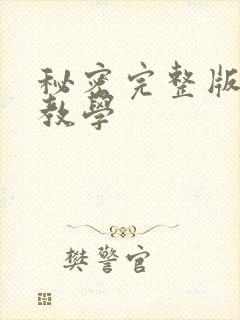 秘密完整版
教学
樊警官